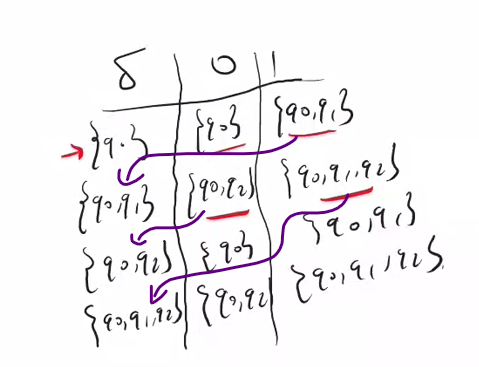 δ 0 1
→ {q0} {q0} {q0,q1}
{q0,q1} {q0,q2} {q0,q1,q2}
{q0,q2} {q0} {q0,q1}
{q0,q1,q2} {q0,q2} {q0,q1,q2}